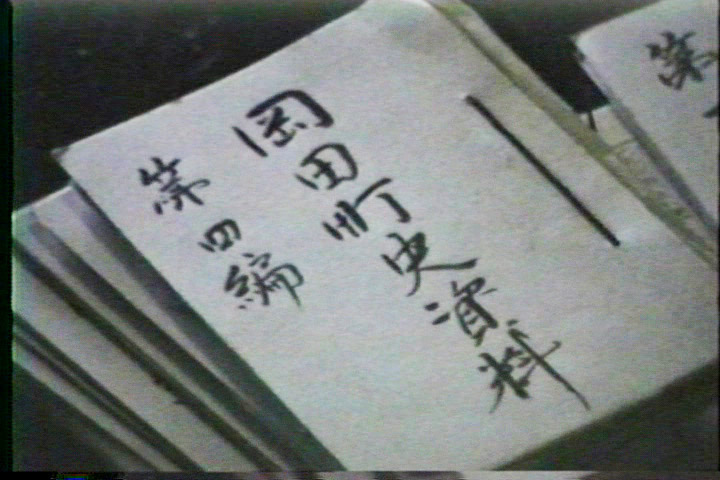 岡田町史資料
第四編
第